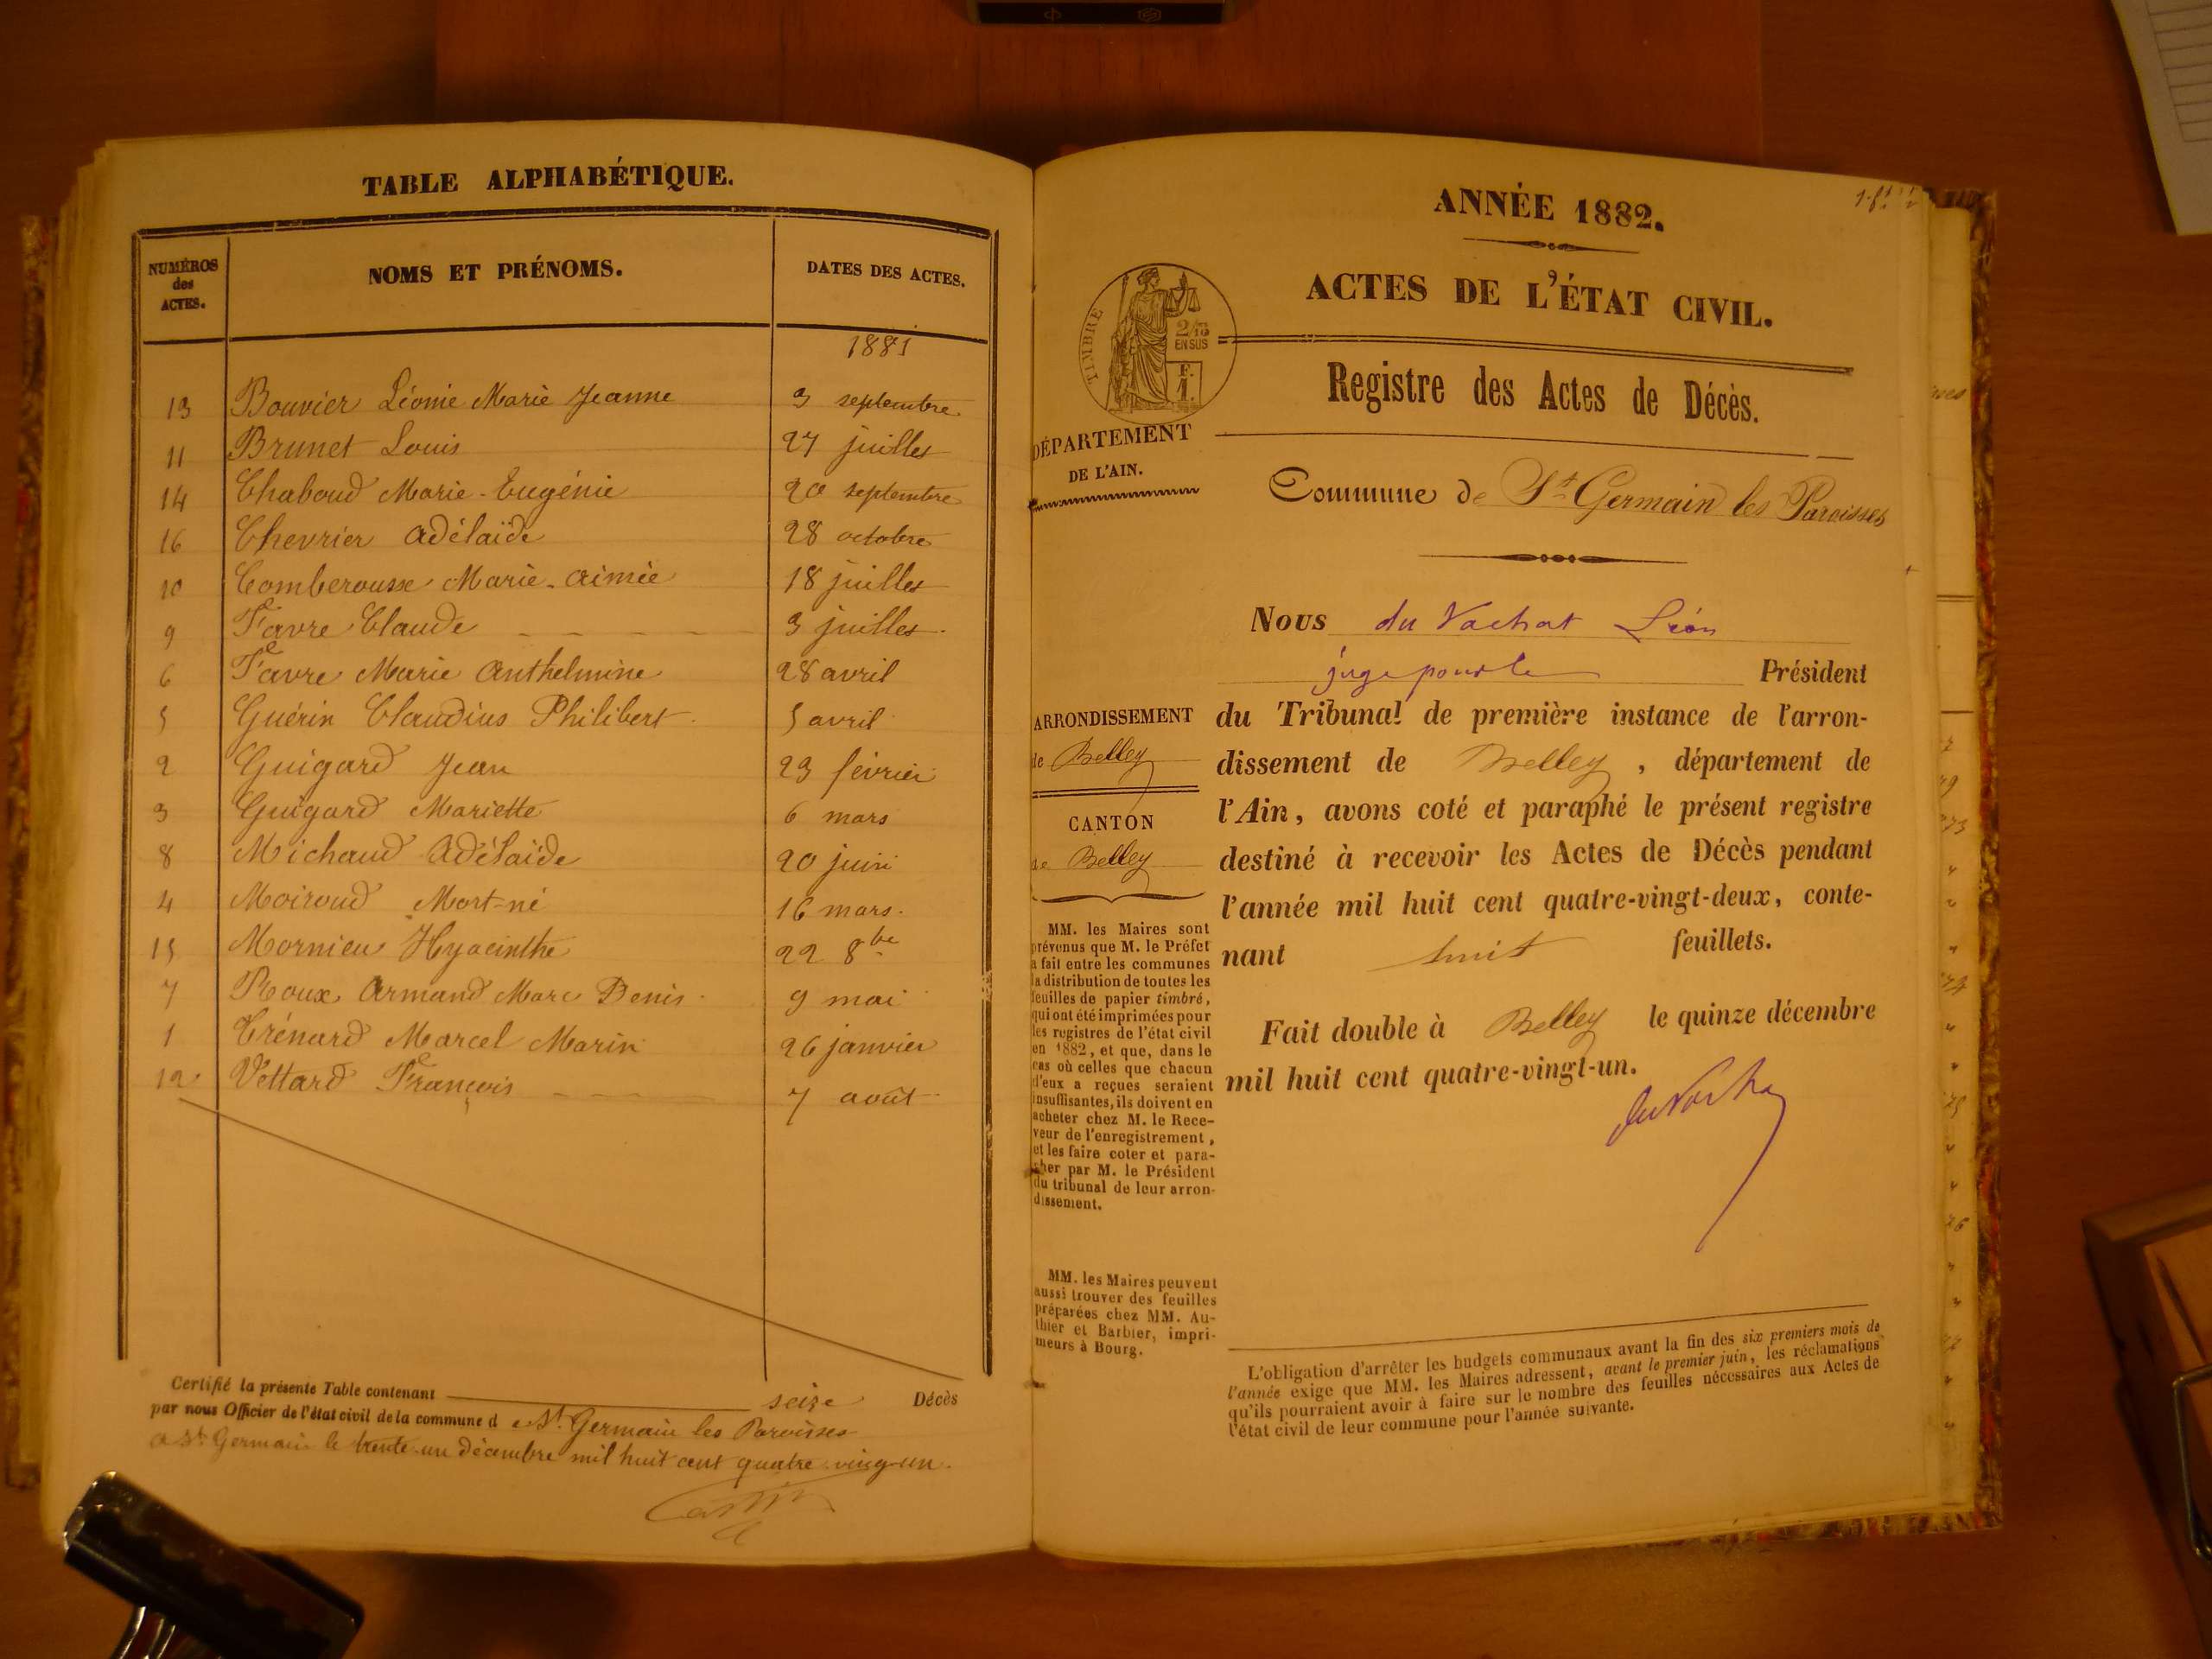 TABLE ALPHABÉTIQUE.
NUMÉROS des ACTES. NOMS ET PRÉNOMS. DATES DES ACTES.
1881
13 Bouvier Léonie Marie Jeanne 3 septembre
11 Brunet Louis 27 juillet
14 Chaboud Marie-Eugénie 20 septembre
16 Chevrier Adélaïde 28 octobre
10 Comberousse Marie-Aimée 18 juillet
9 Favre Claude 3 juillet
6 Favre Marie Anthelmine 28 avril
5 Guérin Claudius Philibert 5 avril
2 Guigard Jean 23 février
3 Guigard Mariette 6 mars
8 Michaud Adélaïde 20 juin
4 Moiroud Mort-né 16 mars
15 Mornieu Hyacinthe 22 8bre
7 Roux Armand Marc Denis 9 mai
1 Trénard Marcel Marin 26 janvier
12 Vettard François 7 août
Certifié la présente Table contenant seize Décès
par nous Officier de l'état civil de la commune d e St. Germain les Paroisses
a St. Germain le trente-un décembre mil huit cent quatre-ving-un.
ANNÉE 1882.
ACTES DE L'ÉTAT CIVIL.
TIMBRE
2/10
EN SUS
F.
1.
Registre des Actes de Décès.
DÉPARTEMENT
DE L'AIN.
Commune de St Germain les Paroisses
Nous du Vachat Léon
juge pour le Président
du Tribunal de première instance de l'arron-
dissement de Belley, département de
l'Ain, avons coté et paraphé le présent registre
destiné à recevoir les Actes de Décès pendant
l'année mil huit cent quatre-vingt-deux, conte-
nant huit feuillets.
Fait double à Belley le quinze décembre
mil huit cent quatre-vingt-un.
du Vachat
ARRONDISSEMENT
de Belley
CANTON
de Belley
MM. les Maires sont
prévenus que M. le Préfet
a fait entre les communes
la distribution de toutes les
feuilles de papier timbré,
qui ont été imprimées pour
les registres de l'état civil
en 1882, et que, dans le
cas où celles que chacun
d'eux a reçues seraient
insuffisantes, ils doivent en
acheter chez M. le Rece-
veur de l'enregistrement,
et les faire coter et para-
pher par M. le Président
du tribunal de leur arron-
dissement.
MM. les Maires peuvent
aussi trouver des feuilles
préparées chez MM. Au-
thier et Barbier, impri-
meurs à Bourg.
L'obligation d'arrêter les budgets communaux avant la fin des six premiers mois de
l'année exige que MM. les Maires adressent, avant le premier juin, les réclamations
qu'ils pourraient avoir à faire sur le nombre des feuilles nécessaires aux Actes de
l'état civil de leur commune pour l'année suivante.